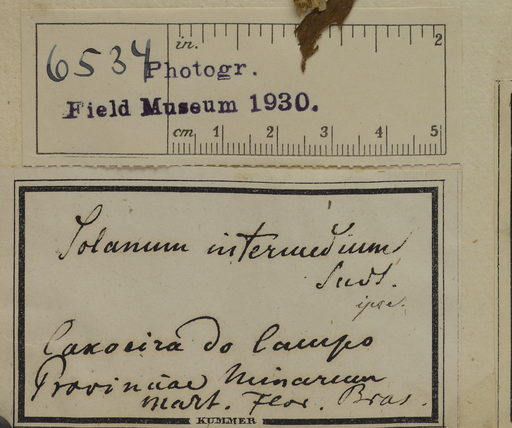 6534
in. 2
Photogr.
Field Museum 1930.
cm 1 2 3 4 5
Solanum intermedium
Sndt.
ipse.
Caxoeira do Campo
Provinciae Minarum
Mart. Flor. Bras.
KUMMER